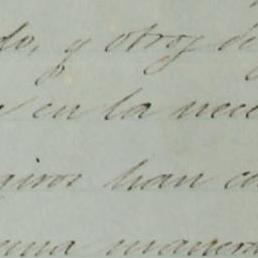 do, y otros de
s en la nece
giros han co
ema manera